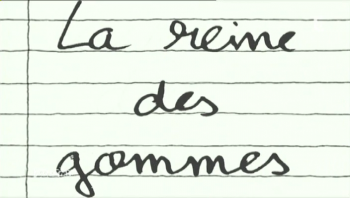 La reine
des
gommes